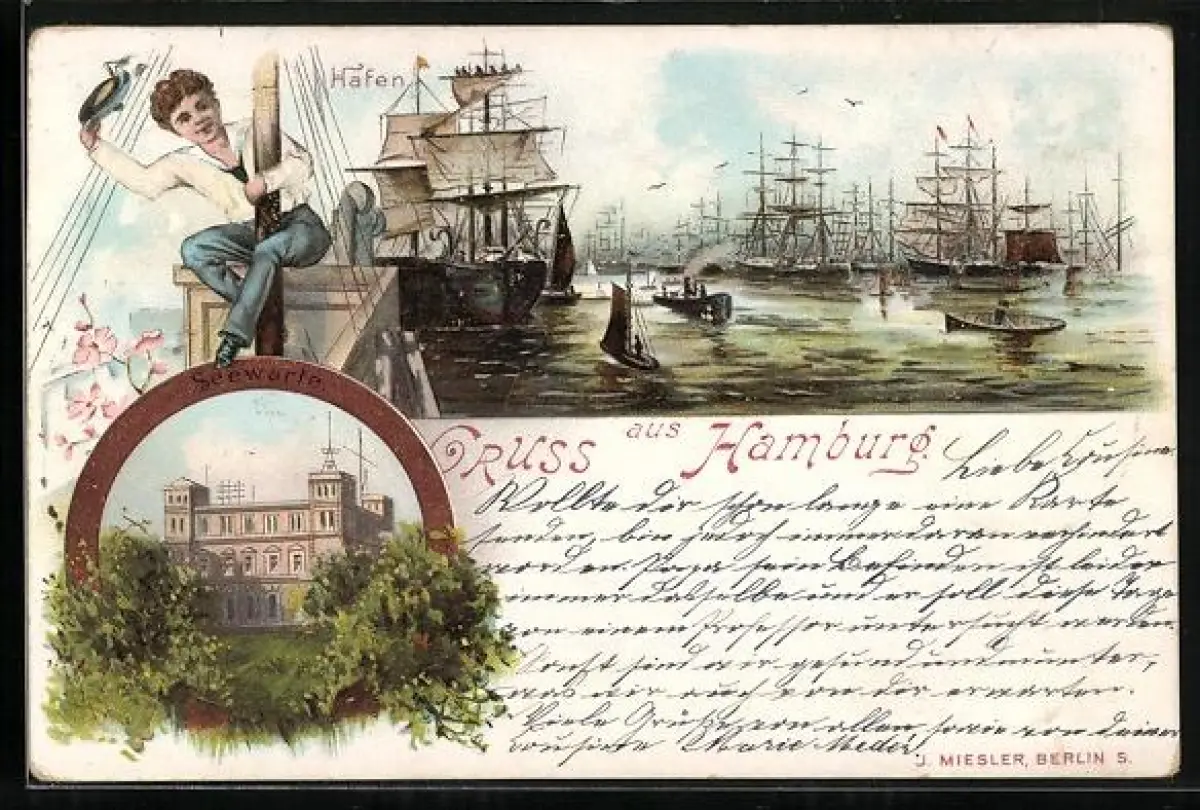 Hafen
Seewarte.
Gruss aus Hamburg.
Liebe Cousine
Wollte dir schon lange eine Karte
senden, bin jedoch immer daran verhindert
worden. Papa sein Befinden ist leider
immer dasselbe und er soll diese Tage
von einem Professor untersucht werden.
Sonst sind wir gesund und munter,
was wir auch von dir erwarten.
Viele Grüße von allen, sowie von deiner
Cousine Marie Meder
J. MIESLER, BERLIN S.